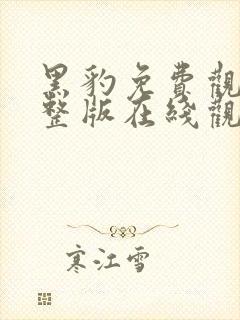 黑豹免費觀
整版在线觀
寒江雪